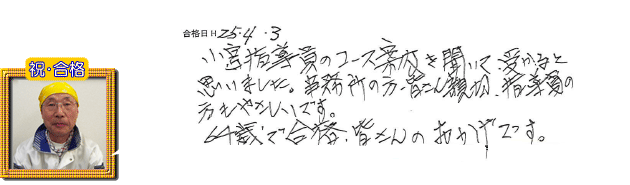 合格日 H 25.4.3
小宮指導員のコース案内を聞いて受かると
思いました。事務所の方皆さん親切、指導員の
方もやさしいです。
64歳で合格、皆さんのおかげです。
祝・合格